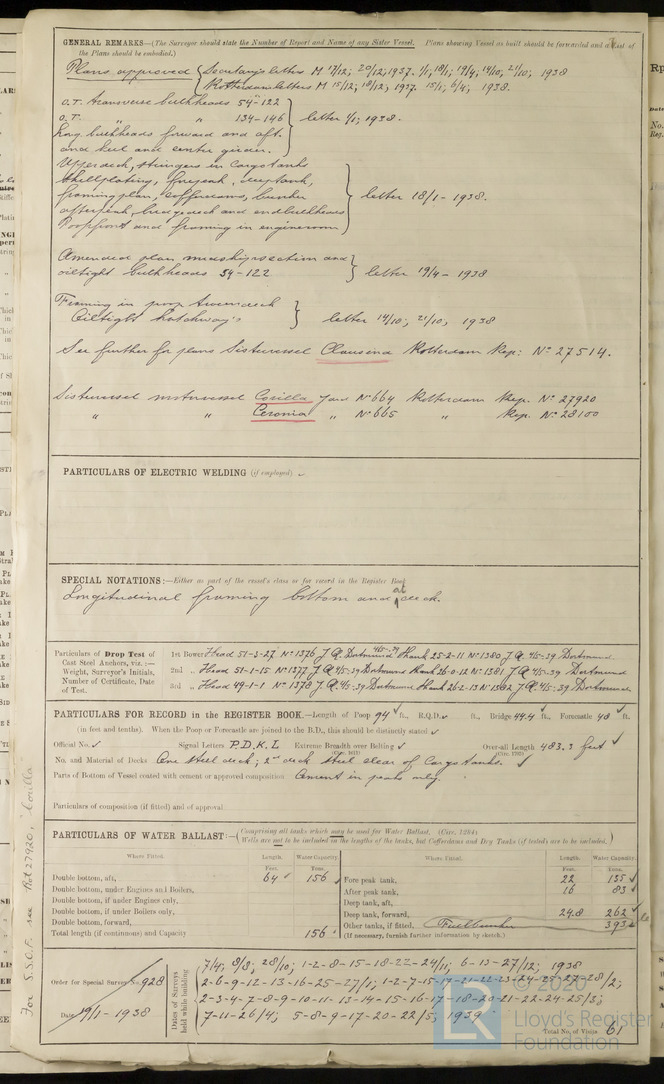 GENERAL REMARKS—(The Surveyor should state the Number of Report and Name of any Sister Vessel. Plans showing Vessel as built should be forwarded and a list of
the Plans should be embodied.)
Plans approved { Secretary's letters M 17/12; 20/12; 1937. 1/1; 18/1; 19/4; 14/10; 21/10; 1938
Rotterdam letters M 15/12; 18/12; 1937. 15/1; 6/4; 1938.
O.T. transverse bulkheads 54-122
O.T. " " 134-146 } letter 1/1; 1938.
Long bulkheads forward and aft.
and keel and center girder.
Upperdeck, stringers in Cargotanks
Shellplating, forepeak, deeptank,
framingplan, cofferdams, bunker } letter 18/1 - 1938.
afterpeak, bridgedeck and endbulkheads
Poopfront and framing in engineroom
Amended plan midshipsection and
oiltight bulkheads 54-122 } letter 19/4 - 1938
Framing in poop tweendeck
Oiltight hatchways } letter 14/10; 21/10; 1938
See further for plans Sistervessel Clausina Rotterdam Rep: No 27514.
Sistervessel motorvessel Corilla Yard No 664 Rotterdam Rep. No 27920
" " Ceronia " No 665 " Rep. No 28100
PARTICULARS OF ELECTRIC WELDING (if employed)
SPECIAL NOTATIONS:—Either as part of the vessel's class or for record in the Register Book
Longitudinal framing bottom and at deck.
Particulars of Drop Test of Cast Steel Anchors, viz.:— Weight, Surveyor's Initials, Number of Certificate, Date of Test.
1st Bower Head 51-3-27 No 1376 J.A. 4/5-39 Dortmund Shank 25-2-11 No 1380 J.A. 4/5-39 Dortmund
2nd " Head 51-1-15 No 1377 J.A. 4/5-39 Dortmund Shank 26-0-12 No 1381 J.A. 4/5-39 Dortmund
3rd " Head 49-1-1 No 1378 J.A. 4/5-39 Dortmund Shank 26-2-13 No 1382 J.A. 4/5-39 Dortmund
PARTICULARS FOR RECORD in the REGISTER BOOK.—Length of Poop 94 ft., R.Q.D. ft., Bridge 44.4 ft., Forecastle 48 ft.
(in feet and tenths). When the Poop or Forecastle are joined to the B.D., this should be distinctly stated
Official No. Signal Letters P.D.K.L Extreme Breadth over Belting (Circ. 1612) Over-all Length 483.3 feet (Circ. 1703)
No. and Material of Decks One steel deck; 2nd deck steel clear of Cargotanks.
Parts of Bottom of Vessel coated with cement or approved composition Cement in peaks only.
Particulars of composition (if fitted) and of approval
PARTICULARS OF WATER BALLAST:—(Comprising all tanks which may be used for Water Ballast. (Circ. 1284)
Wells are not to be included in the lengths of the tanks, but Cofferdams and Dry Tanks (if tested) are to be included.)
Where Fitted. Length. Water Capacity. Where Fitted. Length. Water Capacity.
Feet. Tons. Feet. Tons.
Double bottom, aft, 64 156 Fore peak tank, 22 135
Double bottom, under Engines and Boilers, After peak tank, 16 83
Double bottom, if under Engines only, Deep tank, aft,
Double bottom, if under Boilers only, Deep tank, forward, 24.8 262
Double bottom, forward, Other tanks, if fitted, Fuelbunker 393
Total length (if continuous) and Capacity 156 (If necessary, furnish further information by sketch.)
Order for Special Survey No. 928
Date 19/1 - 1938
Dates of Surveys held while building
7/4; 8/8; 28/10; 1-2-8-15-18-22-24/11; 6-13-27/12; 1938
2-6-9-12-13-16-25-27/1; 1-2-7-15-17-21-22-23-24-25-27-28/2;
2-3-4-7-8-9-10-11-13-14-15-16-17-18-20-21-22-24-25/3;
7-11-26/4; 5-8-9-17-20-22/5; 1939
Total No. of Visits 61
For S.S.O.F. see Rot 27920, Corilla
LR
© 2020
Lloyd's Register
Foundation